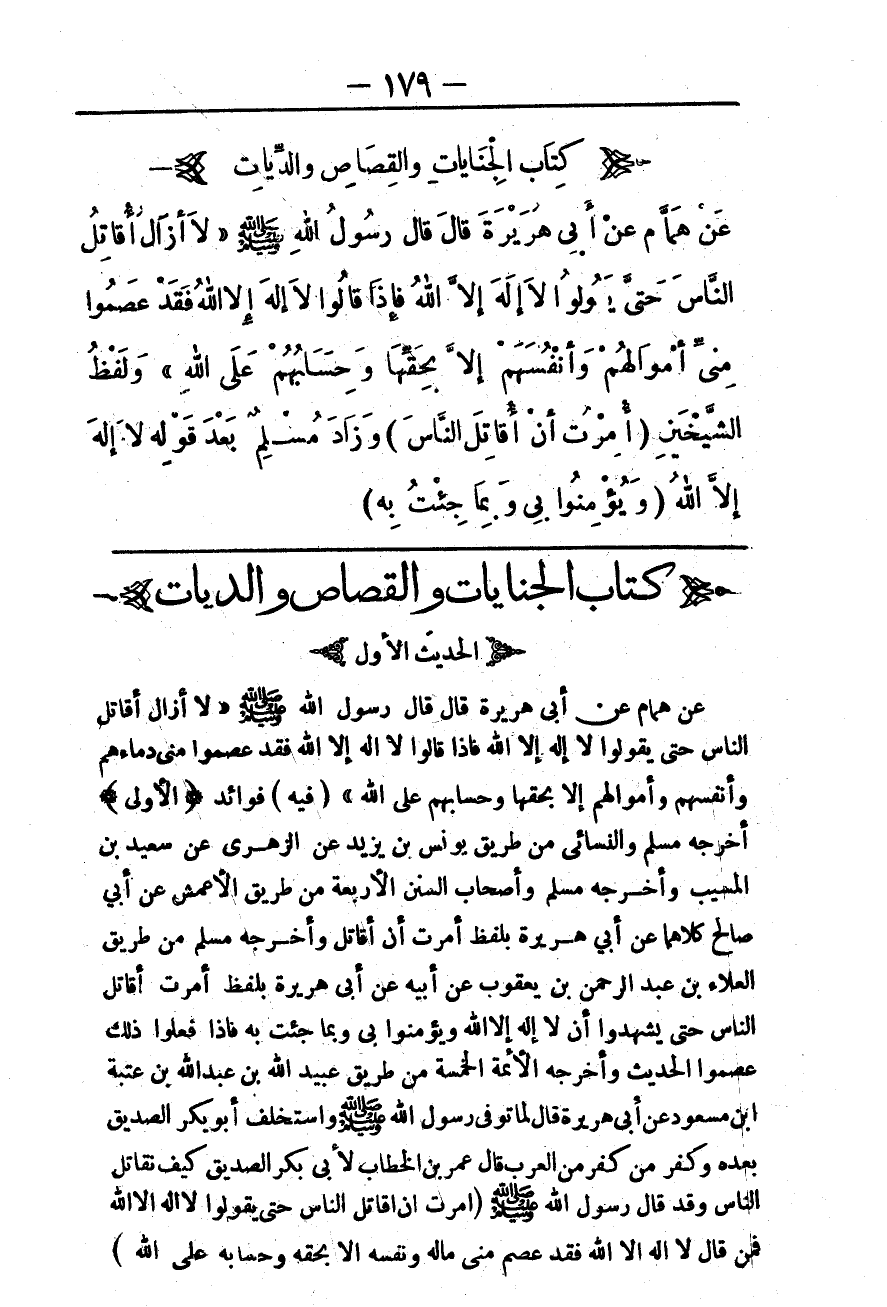 — ١٧٩ —
كِتَاب الْجِنَايَاتِ والقِصَاصِ والدِّيَاتِ
عَنْ هَمَّامٍ عنْ أَبِي هُرَيْرَةَ قالَ قال رسُولُ اللهِ ﷺ « لاَ أزَالُ أُقاتِلُ
النَّاسَ حَتىَّ يَقُولوُا لاَ إلَهَ إلاَّ اللهُ فإِذَا قالُوا لاَ إلهَ إِلا اللهُ فَقَدْ عَصَمُوا
مِنىِّ أمْوالهُمْ وَأنْفُسَهَمْ إلاَّ بِحَقِّهَا وَحِسَابُهُمْ عَلَى اللهِ » وَلَفْظُ
الشَّيْخَينِ ( أُمِرْتُ أنْ أُقاتِلَ النَّاسَ ) وَزَادَ مُسْلِمٌ بَعْدَ قَوْلِه لا إلهَ
إلاَّ اللهُ ( وَيُؤْمِنُوا بِي وَبِمَا جِئْتُ بِهِ )
كتاب الجنايات والقصاص والديات
الحديث الأول
عن همام عن أبى هريرة قال قال رسول الله ﷺ « لا أزال أقاتل
الناس حتى يقولوا لا إله إلا الله فاذا قالوا لا اله إلا الله فقد عصموا منى دماءهم
وأنفسهم وأموالهم إلا بحقها وحسابهم على الله » ( فيه ) فوائد ﴿ الأولى ﴾
أخرجه مسلم والنسائى من طريق يونس بن يزيد عن الزهرى عن سعيد بن
المسيب وأخرجه مسلم وأصحاب السنن الأربعة من طريق الأعمش عن أبي
صالح كلاهما عن أبي هريرة بلفظ أمرت أن أقاتل وأخرجه مسلم من طريق
العلاء بن عبد الرحمن بن يعقوب عن أبيه عن أبى هريرة بلفظ أمرت أقاتل
الناس حتى يشهدوا أن لا إله إلا الله ويؤمنوا بى وبما جئت به فاذا فعلوا ذلك
عصموا الحديث وأخرجه الأئمة الخمسة من طريق عبيد الله بن عبد الله بن عتبة
ابن مسعود عن أبى هريرة قال لما توفى رسول الله ﷺ واستخلف أبو بكر الصديق
بعده وكفر من كفر من العرب قال عمر بن الخطاب لأبى بكر الصديق كيف نقاتل
الناس وقد قال رسول الله ﷺ ( امرت ان اقاتل الناس حتى يقولوا لا اله الا الله
فمن قال لا اله الا الله فقد عصم منى ماله ونفسه الا بحقه وحسابه على الله )